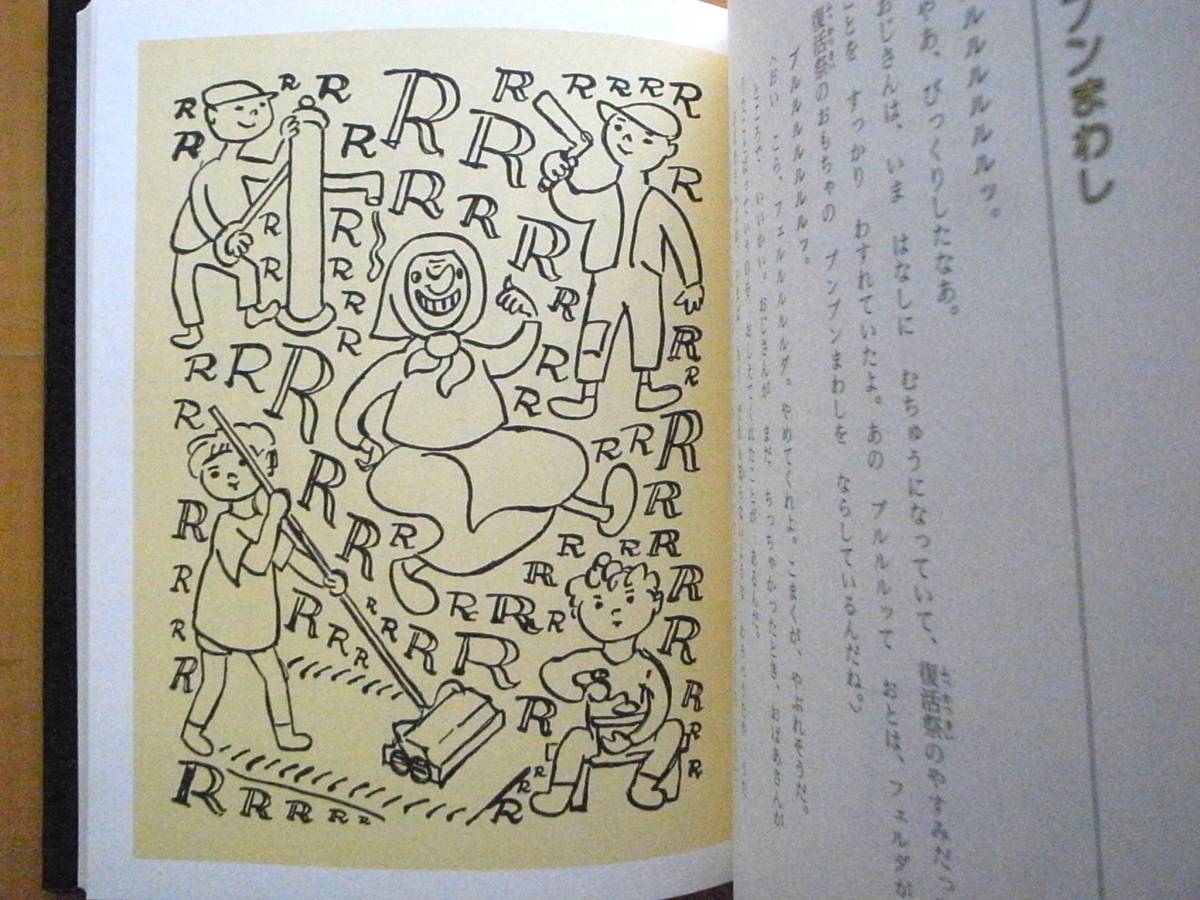 R R R R R R R R R
R R R R R
R R R R R
R R R R R
R R R R R
R R R R R
R R R R R
R R R R R
R R R R R
R R R R R
R R R R R
R R R R R
ブンまわし
ルルルルルルッ。
やあ、びっくりしたなあ。
おじさんは、いま はなしに むちゅうになっていて、復活祭のやすみだっ
ことを すっかり わすれていたよ。あの ブルルルッて おとは、フェルダが
復活祭のおもちゃの ブンブンまわしを ならしているんだね。〉
ブルルルルルルルルルッ。
〈おい こら、フェルルルルルダ。やめてくれよ。こまくが、やぶれそうだ。
ところで、いいかい。おじさんが まだ ちっちゃかったとき、おばあさんが
おしえてくれたことが あるんだ。